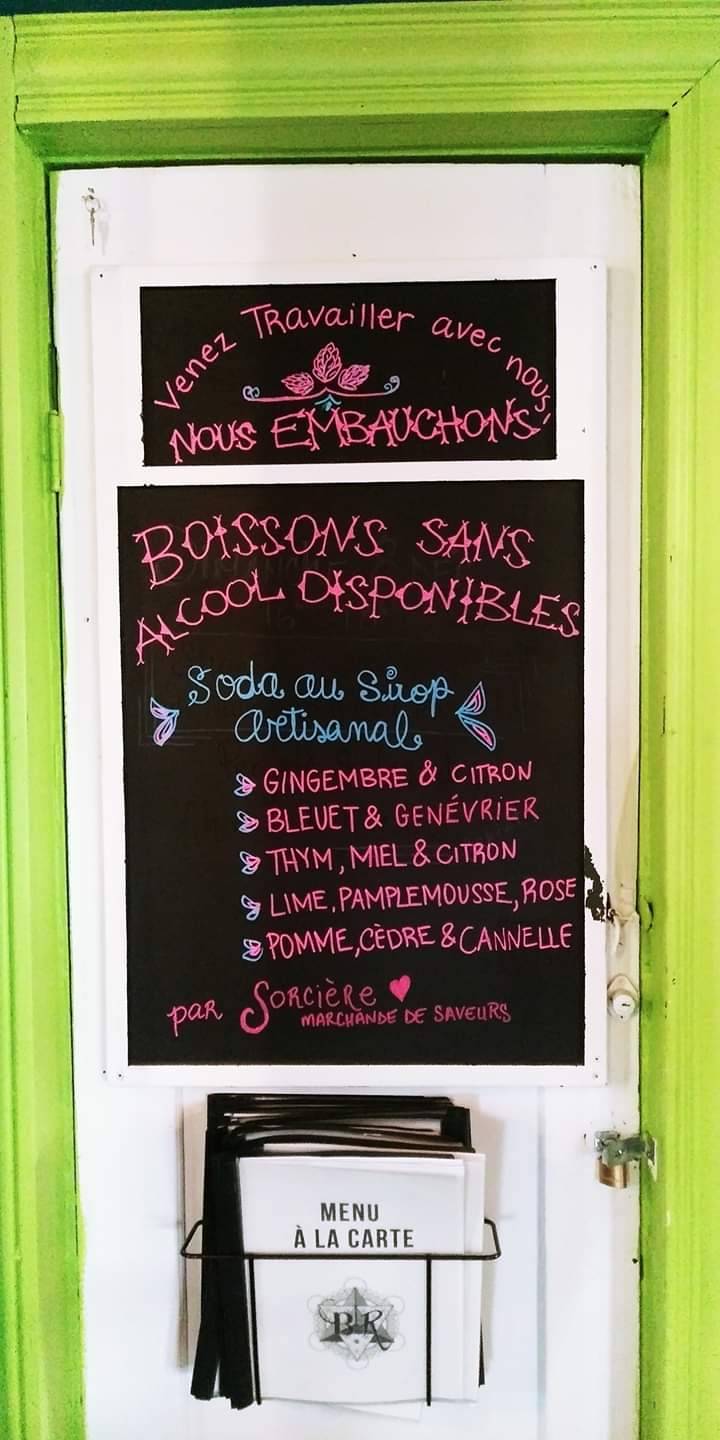 Venez Travailler avec nous!
NOUS EMBAUCHONS
BOISSONS SANS
ALCOOL DISPONIBLES
Soda au Sirop
artisanal
GINGEMBRE & CITRON
BLEUET & GENÉVRIER
THYM, MIEL & CITRON
LIME, PAMPLEMOUSSE, ROSE
POMME, CÈDRE & CANNELLE
par Sorcière
MARCHANDE DE SAVEURS
MENU
À LA CARTE
BR